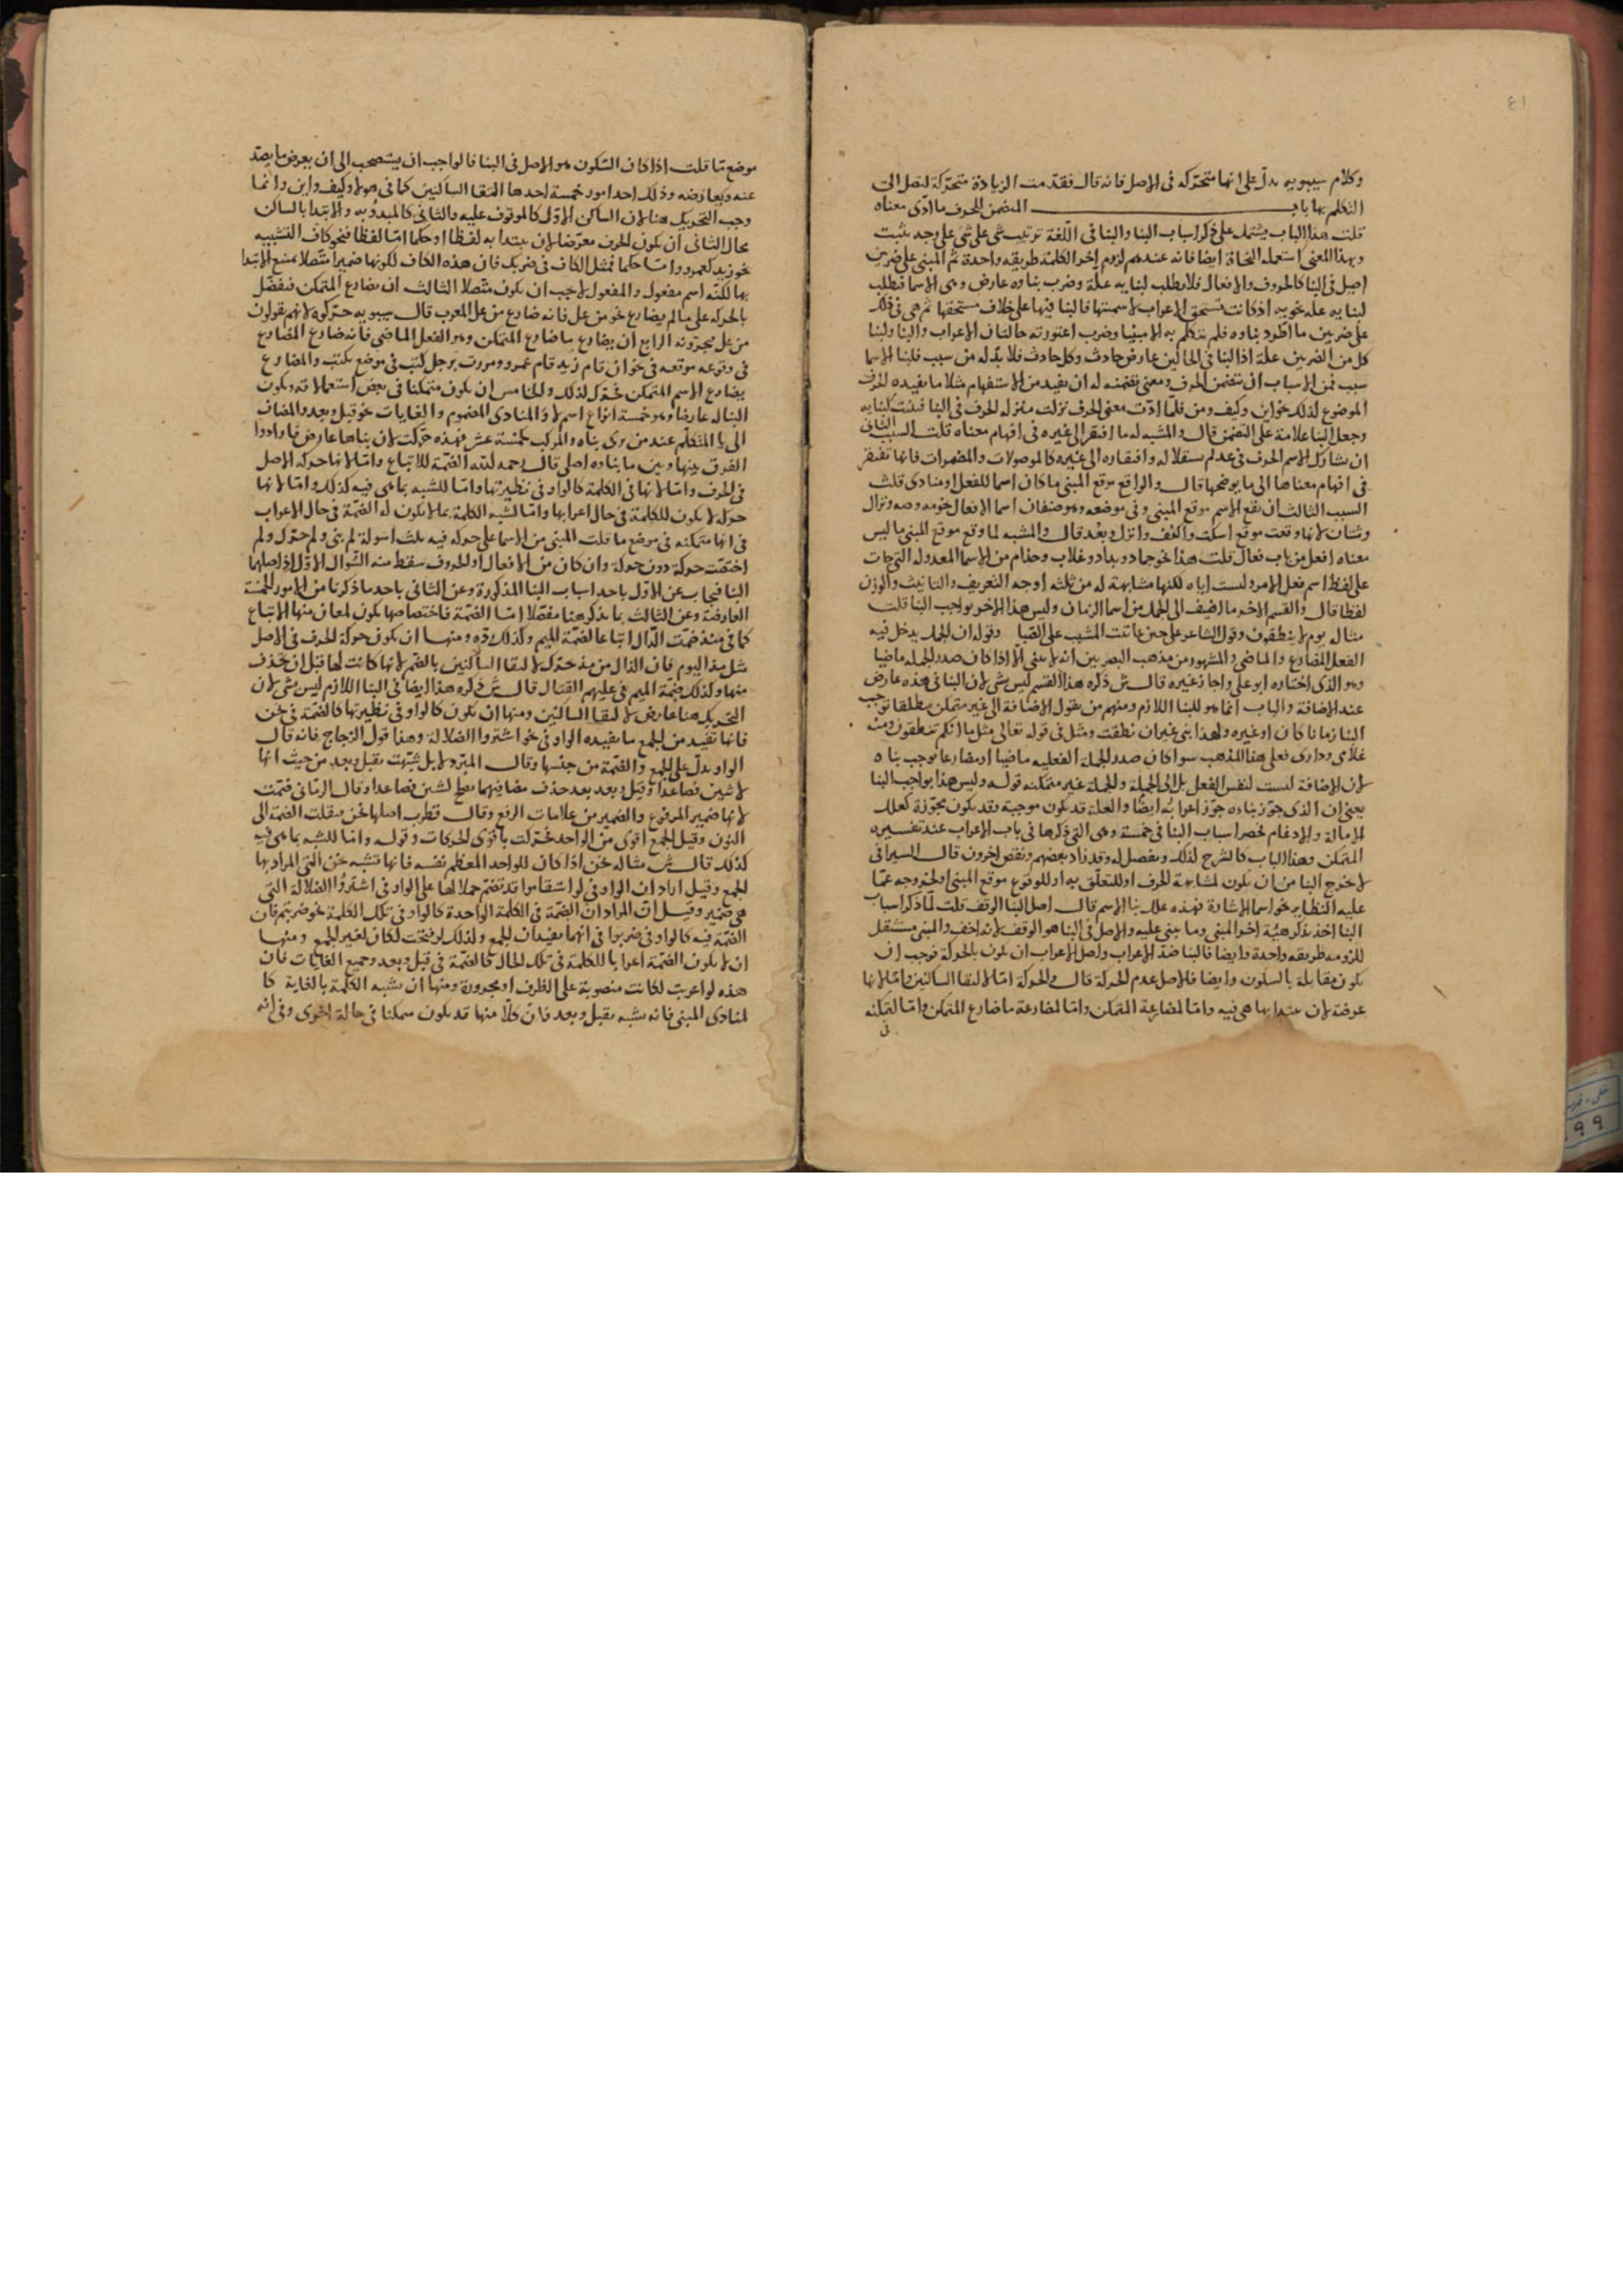 ٤١
وكلام سيبويه يدلّ على انها متحركة فى الاصل فانه قال فقدمت الزيادة متحركة لتصل الى
التكلم بها باب المتضمن للحرف ما ادّى معناه
قلت هذا الباب يشتمل على ذكر اسباب البنا والبنا فى اللغة ترتيب شى على شى على وجه يثبت
وبهذا المعنى استعمله النحاة ايضا فانه عندهم لزوم اخر الكلمة طريقه واحدة ثم المبنى على ضربين
اصيل فى البنا كالحروف والافعال فلا يطلب لبنايه علّة وضرب بناوه عارض وهى الاسما فيطلب
لبنايه علّه نحويه اذ كانت تستحق الاعراب لاسميتها فالبنا فيها على خلاف مستحقها ثم هى فى ذلك
على ضربين ما اطرد بناوه فلم يتكلم به الا مبنيا وضرب اعتورته حالتان الاعراب والبنا ولبنا
كل من الضربين علّة اذ البنا فى الحالين عارض حادث وكل حادث فلا بدّ له من سبب فلبنا الاسما
سبب فمن الاسباب ان تتضمن الحرف ومعنى تضمنه له ان يفيد من الاستفهام مثلا ما يفيده الحرف
الموضوع لذلك نحو اين وكيف ومن فلمّا ادّت معنى الحرف نزلت منزله الحرف فى البنا فبنيت كبنايه
وجعل البنا علامة على التضمن قال والمشبه له ما افتقر الى غيره فى افهام معناه قلت السبب الثانى
ان يشارك الاسم الحرف فى عدم استقلاله وافتقاره الى غيره كالموصولات والمضمرات فانها تفتقر
فى افهام معناها الى ما يوضحها قال والواقع موقع المبنى ما كان اسما للفعل او منادى قلت
السبب الثالث ان يقع الاسم موقع المبنى وفى موضعه وهو صنفان اسما الافعال نحو مه وصه ونزال
وشتان لانها وقعت موقع اسكت واكفف وانزل وبعُد قال والمشبه لما وقع موقع المبنى ما ليس
معناه افعل من باب فعال قلت هذا نحو جماد وبداد وغلاب وحذام من الاسما المعدوله التى جات
على لفظ اسم فعل الامر وليست اياه لكنها مشابهة له من ثلثه اوجه التعريف والتانيث والوزن
لفظا قال والقسم الاخر ما اضيف الى الجمل من اسما الزمان وليس هذا الاخر بواجب البنا قلت
مثاله يوم لا ينطقون وقول الشاعر على حين عاتبت المشيب على الصّبا وقوله ان الجمل يدخل فيه
الفعل المضارع والماضى والمشهور من مذهب البصريين انه لا يبنى الّا اذا كان صدر الجمله ماضيا
وهو الذى اختاره ابو على واجاز غيره قال ش ذكره هذا القسم ليس بشى لان البنا فى هذه عارض
عند الاضافة والباب انما هو للبنا اللازم ومنهم من يقول الاضافة الى غير متمكن مطلقا توجب
البنا زمانا كان او غيره ولهذا بنى غير ان نطقت ومثل فى قوله تعالى مثل ما انكم تنطقون ومنه
غلامى ودارى فعلى هذا المذهب سوا كان صدر الجملة الفعليه ماضيا او مضارعا يوجب بناه
لان الاضافة ليست لنفس الفعل بل الى الجملة والجملة غير متمكنه قوله وليس هذا بواجب البنا
يعنى ان الذى جوّز بناءه جوّز اعرابه ايضا والعلة قد يكون موجبة وقد يكون مجوّزة كعلل
الامالة والادغام فحصر اسباب البنا فى خمسة وهى التى ذكرها فى باب الاعراب عند تفسيره
المتمكن وهذا الباب كالشرح لذلك ومفصل له وقد زاد بعضهم ونقص اخرون قال السيرافى
لا يخرج البنا من ان يكون لمشابهة الحرف او للتعلّق به او للوقوع موقع المبنى او لخروجه عمّا
عليه النظاير نحو اسما الاشارة فهذه علل بنا الاسم قال اصل البنا الوقف قلت لمّا ذكر اسباب
البنا اخذ يذكر هيئة اخر المبنى وما يبنى عليه والاصل فى البنا هو الوقف لانه اخف والمبنى مستثقل
للزومه طريقه واحدة وايضا فالبنا ضدّ الاعراب واصل الاعراب ان يكون بالحركة فوجب ان
يكون مقابلة بالسكون وايضا فالاصل عدم الحركة قال والحركة امّا لالتقا الساكنين وامّا لانها
عرضة لان يبتدا بها هى فيه وامّا لمضارعة المتمكن وامّا لمضارعة ما ضارع المتمكن وامّا لتمكنه
فى
موضع مّا قلت اذا كان السكون هو الاصل فى البنا فالواجب ان يستصحب الى ان يعرض ما يصدّ
عنه ويعارضه وذلك احد امور خمسة احدها التقا الساكنين كما فى هولا وكيف واين وانما
وجب التحريك هنا لان الساكن الاوّل كالموقوف عليه والثانى كالمبدوّ به والابتدا بالساكن
محال الثانى ان يكون الحرف معرّضا لان يبتدا به لفظا او حكما امّا لفظا فنحو كاف التشبيه
نحو زيد كعمرو وامّا حكما فمثل الكاف فى ضربك فان هذه الكاف لكونها ضميرا متصلا يمتنع الابتدا
بها لكنّه اسم مفعول والمفعول لا يجب ان يكون متّصلا الثالث ان يضارع المتمكن فيفضّل
بالحركه على ما لم يضارع نحو من عل فانه ضارع من عل المعرب قال سيبويه حرّكوه لانهم يقولون
من عل فيجرّونه الرابع ان يضارع ما ضارع المتمكن وهو الفعل الماضى فانه ضارع المضارع
فى وقوعه موقعه فى نحو ان قام زيد قام عمرو ومررت برجل كتب فى موضع يكتب والمضارع
يضارع الاسم المتمكن فحرّك لذلك والخامس ان يكون متمكنا فى بعض استعمالاته ويكون
البنا له عارضا وهو خمسة انواع اسم لا والمنادى المضموم والغايات نحو قبل وبعد والمضاف
الى يا المتكلم عند من يرى بناه والمركب كخمسة عشر فهذه حرّكت لان بناها عارض فارادوا
الفرق بينها وبين ما بناوه اصلى قال رحمه الله الضمّة للاتباع وامّا لانها حركه الاصل
فى الحرف وامّا لانها فى الكلمة كالواو فى نظيرتها وامّا للشبه بما هى فيه كذلك وامّا لانها
حركه لا يكون للكلمة فى حال اعرابها وامّا لشبه الكلمة بما لا يكون له الضمّة فى حال الاعراب
فى انها متمكنه فى موضع ما قلت المبنى من الاسما على حركه فيه ثلث اسولة لم بنى ولم حرّك ولم
اختصّت حركة دون حركة وان كان من الافعال او الحروف سقط منه السّوال الاوّل اذ اصلهما
البنا فيجاب عن الاوّل باحد اسباب البنا المذكورة وعن الثانى باحد ما ذكرنا من الامور الخمسة
العارضة وعن الثالث بما يذكر هنا مفصّلا امّا الضمّة فاختصاصها يكون لمعان منها الاتباع
كما فى منذ ضمّت الذّال اتباعا لضمّة الميم وكذلك ردّه ومنها ان يكون حركة الحرف فى الاصل
مثل مذ اليوم فان الذال من مذ حرّك لالتقا الساكنين بالضّم لانها كانت لها قبل ان تحذف
منها وكذلك ضمّة الميم فى عليهم القتال قال ش ذكره هذا ايضا فى البنا اللازم ليس بشى لان
التحريك هنا عارض لالتقا الساكنين ومنها ان يكون كالواو فى نظيرتها كالضمّة فى نحن
فانها تفيد من الجمع ما يفيده الواو فى نحو اشتروا الضلالة وهذا قول الزجاج فانه قال
الواو يدلّ على الجمع والضمّة من جنسها وقال المبرّد بل شبّهت بقبل وبعد من حيث انها
لاثنين فصاعدا وقبل وبعد بعد حذف مضافيهما يصلح لشيئين فصاعدا وقال الرمّانى ضمّت
لانها ضمير المرفوع والضمير من علامات الرفع وقال قطرب اصلها نحُن فنقلت الضمّة الى
النون وقيل الجمع اقوى من الواحد فحرّكت باقوى الحركات وقوله وامّا للشبه بما هى فيه
كذلك قال ش مثاله نحن اذا كان للواحد المعظم نفسه فانها تشبه نحن التى المراد بها
الجمع وقيل اراد ان الواو فى لو استقاموا قد تضمّ حملا لها على الواو فى اشتروا الضلالة التى
هى ضمير وقيل انّ المراد انّ الضمّة فى الكلمة الواحدة كالواو فى تلك الكلمة نحو ضربتم فان
الضمّة فيه كالواو فى ضربوا فى انهما يفيدان الجمع ولذلك لو فتحت لكان لغير الجمع ومنها
ان لا يكون الضمّة اعرابا للكلمة فى تلك الحال كالضمّة فى قبل وبعد وجميع الغايات فان
هذه لو اعربت لكانت منصوبة على الظرف او مجرورة ومنها ان يشبه الكلمة بالغاية كا
لمنادى المبنى فانه يشبه بقبل وبعد فان كلّا منها قد يكون متمكنا فى حالة اخرى وفى انه